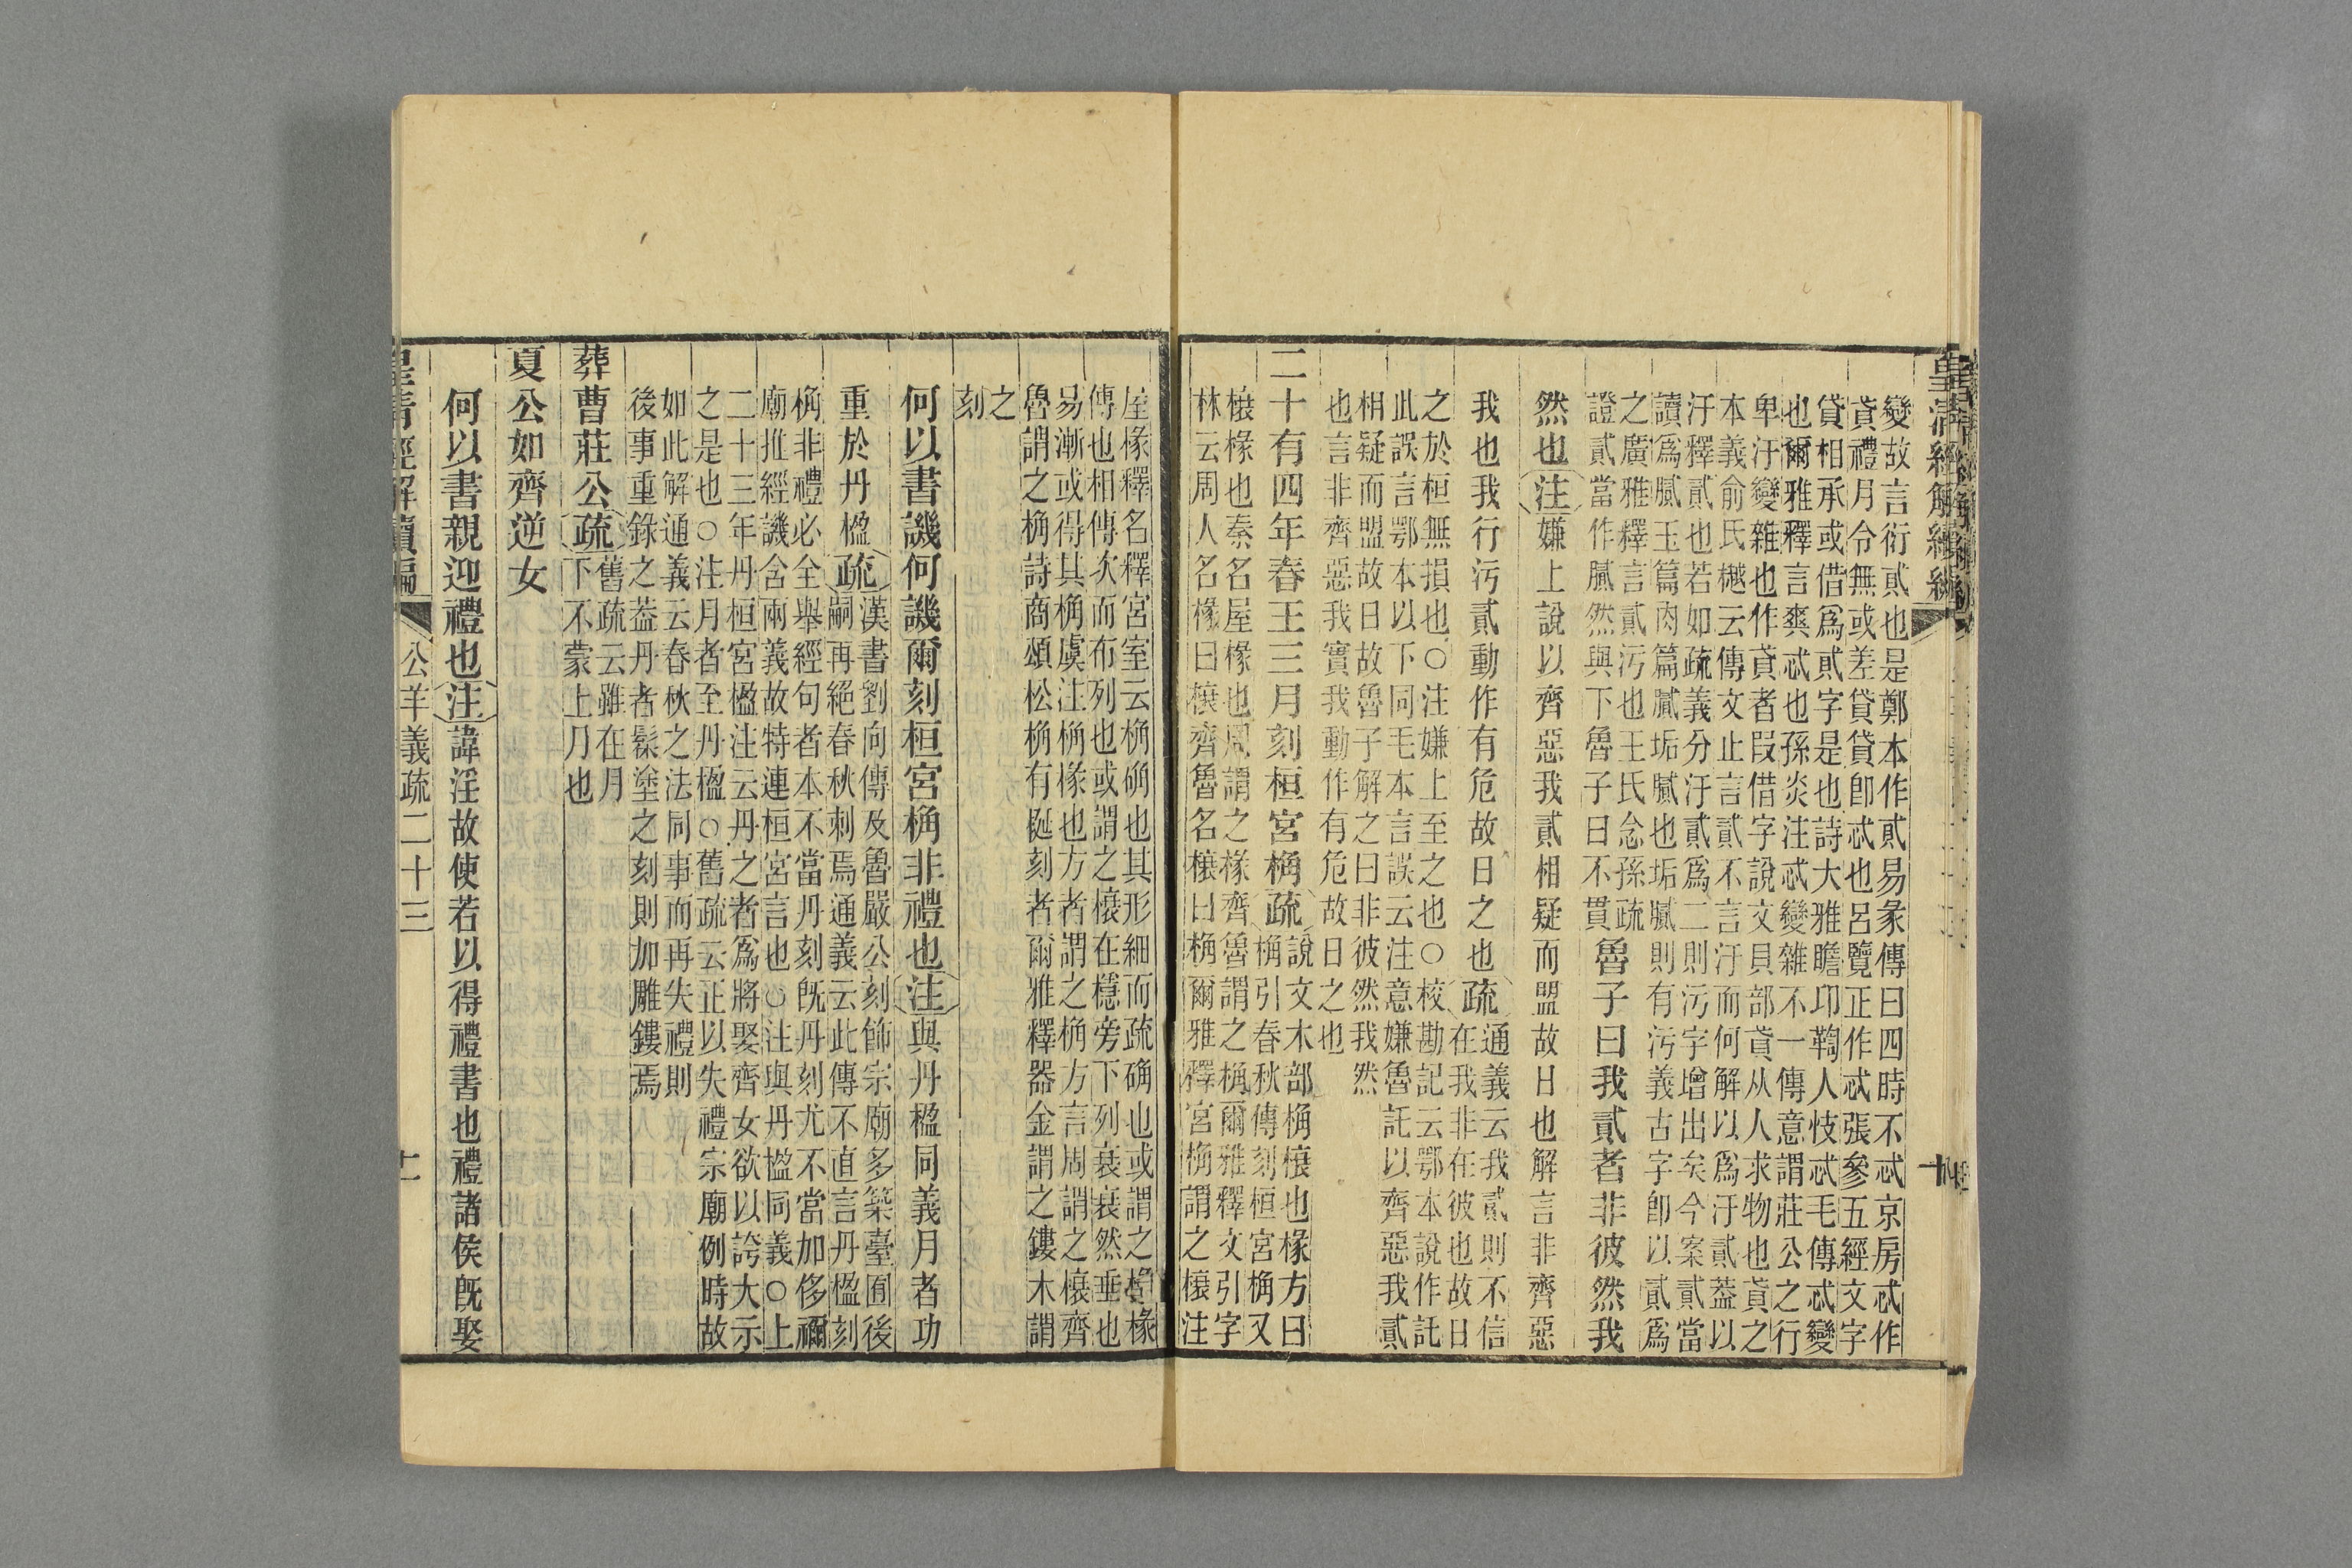 皇清經解續編
變故言衍貳也是鄭本作貳易彖傳曰四時不忒京房忒作
貣禮月令無或差貸貸卽忒也呂覽正作忒張參五經文字
貸相承或借爲貳字是也詩大雅瞻卬鞫人忮忒毛傳忒變
也爾雅釋言爽忒也孫炎注忒變雜不一傳意謂莊公之行
卑汙變雜也作貣者叚借字說文貝部貣从人求物也貣之
本義俞氏樾云傳文止言貳不言汙而何解以爲汙貳蓋以
汙釋貳也若如疏義分汙貳爲二則污字增出矣今案貳當
讀爲膩玉篇肉篇膩垢膩也垢膩則有污義古字卽以貳爲
之廣雅釋言貳污也王氏念孫疏
證貳當作膩然與下魯子曰不貫
魯子曰我貳者非彼然我
然也注嫌上說以齊惡我貳相疑而盟故日也解言非齊惡
我也我行污貳動作有危故日之也疏
通義云我貳則不信
在我非在彼也故日
之於桓無損也○注嫌上至之也○校勘記云鄂本說作託
此誤言鄂本以下同毛本言誤云注意嫌魯託以齊惡我貳
相疑而盟故日故魯子解之曰非彼然我然
也言非齊惡我實我動作有危故日之也
二十有四年春王三月刻桓宮桷疏
說文木部桷榱也椽方曰
桷引春秋傳刻桓宮桷又
榱椽也秦名屋椽也周謂之椽齊魯謂之桷爾雅釋文引字
林云周人名椽曰榱齊魯名榱曰桷爾雅釋宮桷謂之榱注
屋椽釋名釋宮室云桷确也其形細而疏确也或謂之椽
傳也相傳次而布列也或謂之榱在檼旁下列衰衰然垂也
易漸或得其桷虞注桷椽也方者謂之桷方言周謂之榱齊
魯謂之桷詩商頌松桷有梴刻者爾雅釋器金謂之鏤木謂
之
刻
何以書譏何譏爾刻桓宮桷非禮也注與丹楹同義月者功
重於丹楹疏
漢書劉向傳及魯嚴公刻飾宗廟多築臺囿後
嗣再絕春秋刺焉通義云此傳不直言丹楹刻
桷非禮必全舉經句者本不當丹刻旣丹刻尤不當加侈禰
廟推經譏含兩義故特連桓宮言也○注與丹楹同義○上
二十三年丹桓宮楹注云丹之者爲將娶齊女欲以誇大示
之是也○注月者至丹楹○舊疏云正以失禮宗廟例時故
如此解通義云春秋之法同事而再失禮則
後事重錄之葢丹者髹塗之刻則加雕鏤焉
葬曹莊公疏
舊疏云雖在月
下不蒙上月也
夏公如齊逆女
何以書親迎禮也注諱淫故使若以得禮書也禮諸侯旣娶
皇清經解續編 公羊義疏二十三 十一